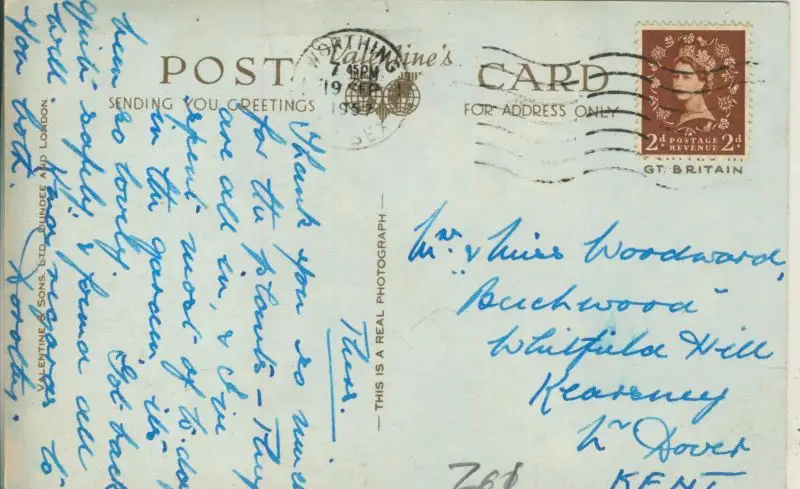 POST CARD
Valentine's
SENDING YOU GREETINGS
FOR ADDRESS ONLY
WORTHING
7 45PM
19 SEP
195
2d POSTAGE REVENUE 2d
GT. BRITAIN
VALENTINE & SONS, LTD., DUNDEE AND LONDON.
THIS IS A REAL PHOTOGRAPH
Thurs.
Thank you so much
for the plants - They
are all in, & I've
spent most of to-day
in the garden, its
been so lovely. Got back
quite safely & found all
well. Kind regards to
you both. Dorothy.
Mrs & Miss Woodward,
"Beechwood"
Whitfield Hill
Kearsney
Nr Dover
KENT